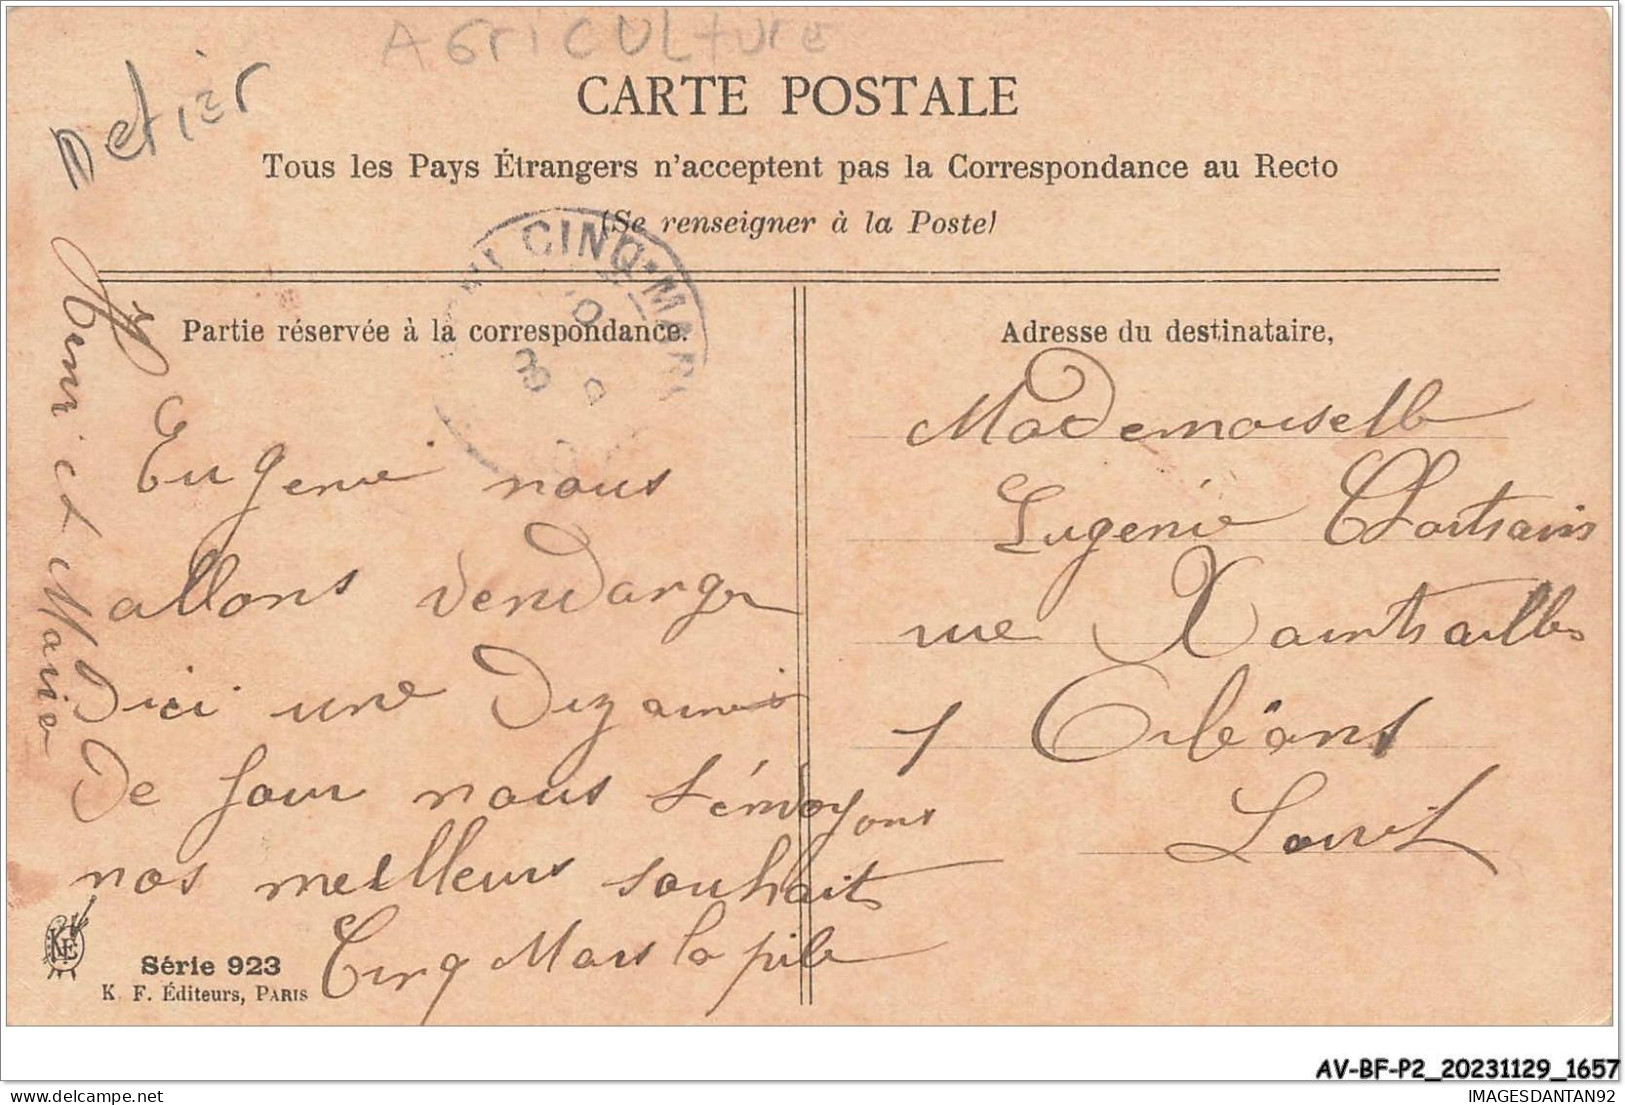 AGriCULture
Metier
CARTE POSTALE
Tous les Pays Étrangers n'acceptent pas la Correspondance au Recto
(Se renseigner à la Poste)
CINQ-MARS
Partie réservée à la correspondance.
Eugenie nous
allons vendanger
d'ici une dizaines
de jour nous t'envoyons
nos meilleurs souhait
Cinq Mars la pile
Henri et Marie
Série 923
K. F. Éditeurs, PARIS
Adresse du destinataire,
Mademoiselle
Eugenie Chartrain
rue Xaintrailles
1 Orléans
Loiret
AV-BF-P2_20231129_1657
IMAGESDANTAN92